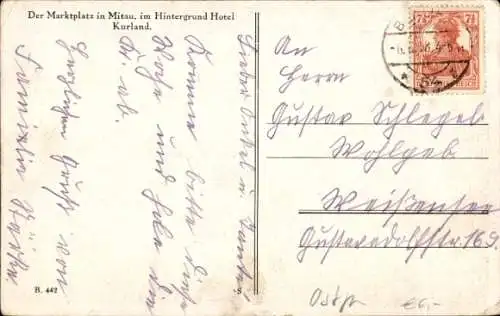 Der Marktplatz in Mitau, im Hintergrund Hotel
Kurland.
Lieber Onkel u. Tante!
Komme bitte diese
Woche und hole die
K. ab.
Herzlichen Gruß von
Familie
An
Herrn
Gustav Schlegel
Wohlgeb
Weißensee
Gustavadolfstr. 169.
7½ 7½
B. 442
S
Ostpr
€6,-